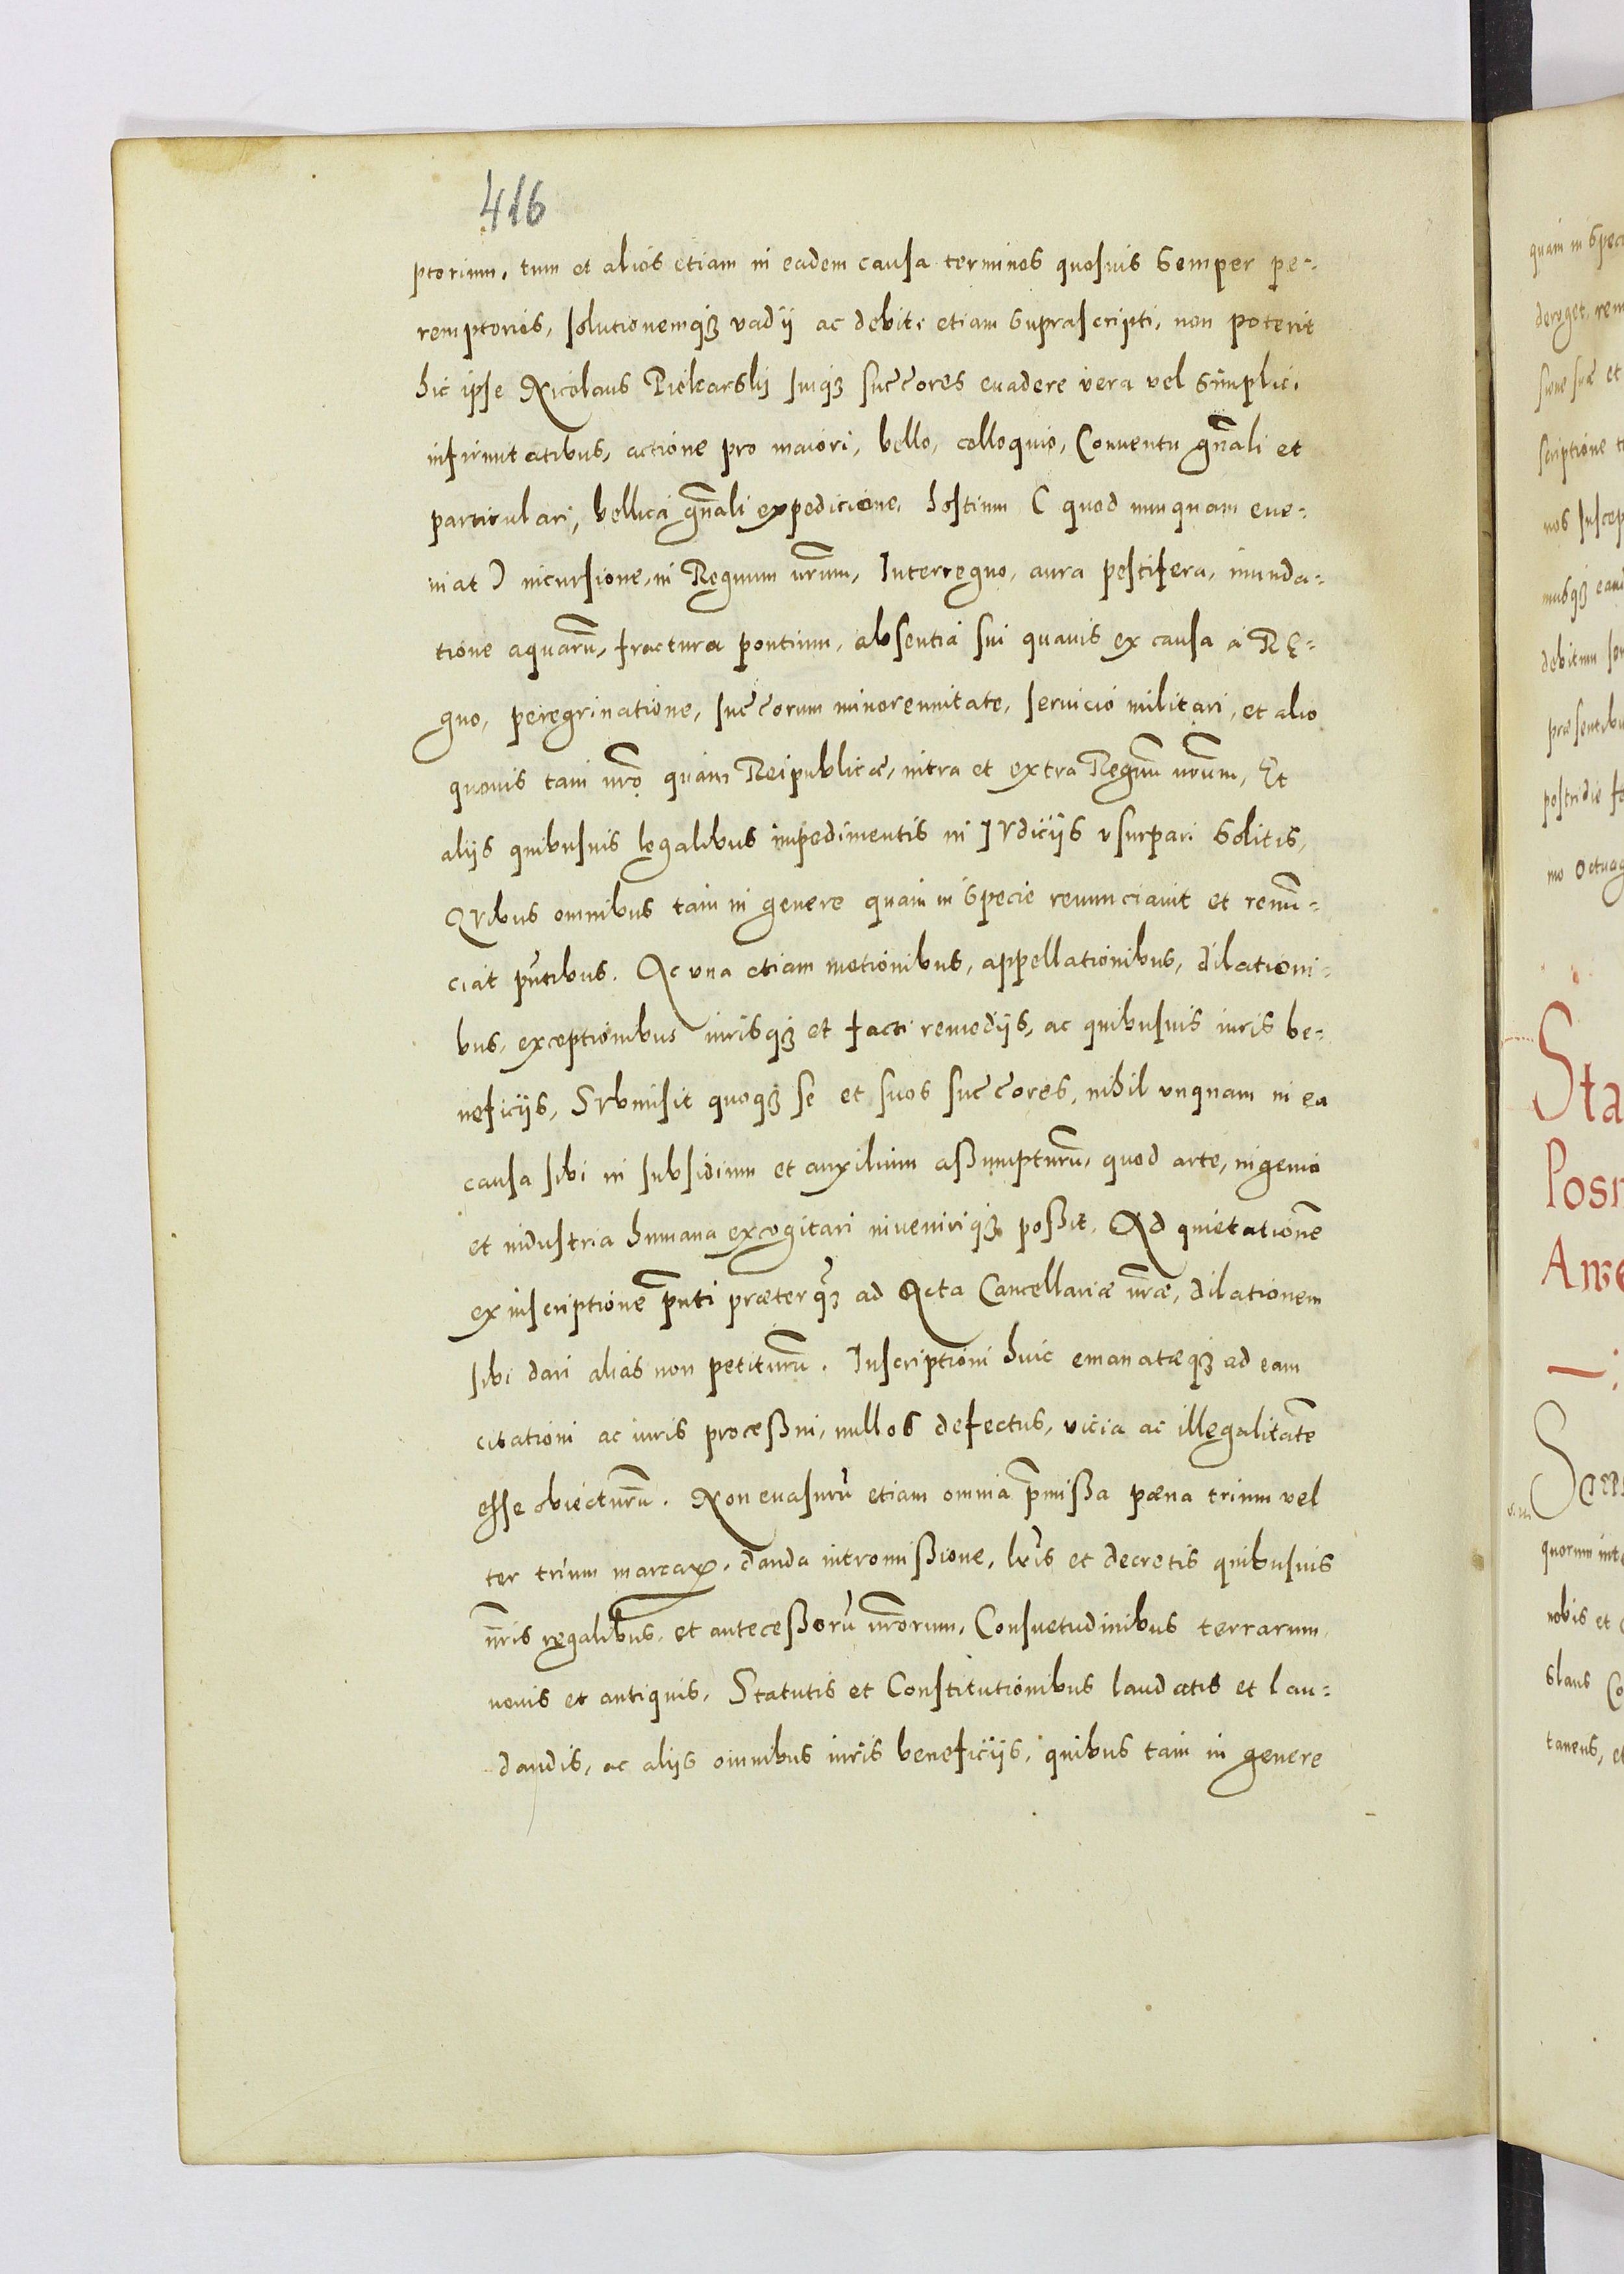 416
ptorium, tum et alios etiam in eadem causa terminos quosuis semper pe=
remptorios, solutionemqꝫ vadij ac debiti etiam suprascripti, non poterit
hic ipse Nicolaus Piekarskij suiqꝫ succ̄ores euadere vera vel simplici
infirmitatibus, actione pro maiori, bello, colloquio, Conuentu gn̄ali et
particulari, bellica gn̄ali expedicione, hostium ( quod nunquam eue=
niat ) incursione, in Regnum nr̄um, Interregno, aura pestifera, inunda=
tione aquarū, fractura pontium, absentia sui quauis ex causa a Re=
gno, peregrinatione, succ̄orum minorennitate, seruicio militari, et alio
quouis tam nr̄o quam Reipublicæ, intra et extra Regnū nr̄um, Et
alijs quibusuis legalibus impedimentis in IVdicijs vsurpari solitis,
QVibus omnibus tam in genere quam in specie renunciauit et renū=
ciat pn̄tibus. Ac vna etiam motionibus, appellationibus, dilationi=
bus, exceptionibus iurisqꝫ et facti remedijs, ac quibusuis iuris be=
neficijs, SVbmisit quoqꝫ se et suos succ̄ores, nihil vnquam in ea
causa sibi in subsidium et auxilium aßumpturū, quod arte, ingenio
et industria humana excogitari inueniriqꝫ poßit. Ad quietationē
ex inscriptione pn̄ti præterqꝫ̄ ad Acta Cancellariæ nr̄æ, dilationem
sibi dari alias non petiturū. Inscriptioni huic emanatæqꝫ ad eam
citationi ac iuris proceßui, nullos defectus, vicia ac illegalitatē
esse obiecturū. Non euasurū etiam omnia p̄mißa pæna trium vel
ter trium marcaꝝ, danda intromißione, lr̄is et decretis quibusuis
nr̄is regalibus, et anteceßorū nr̄orum, Consuetudinibus terrarum
nouis et antiquis, Statutis et Constitutionibus laudatis et lau=
dandis, ac alijs omnibus iuris beneficijs, quibus tam in genere
quam in spec
deroget, rem
sione suæ et
scriptione
nos suscep
musqꝫ
debitum
præsentibu
postridie
mo octuag
Sta
Posn
quorum
nobis et
slaus Co
taneus, et